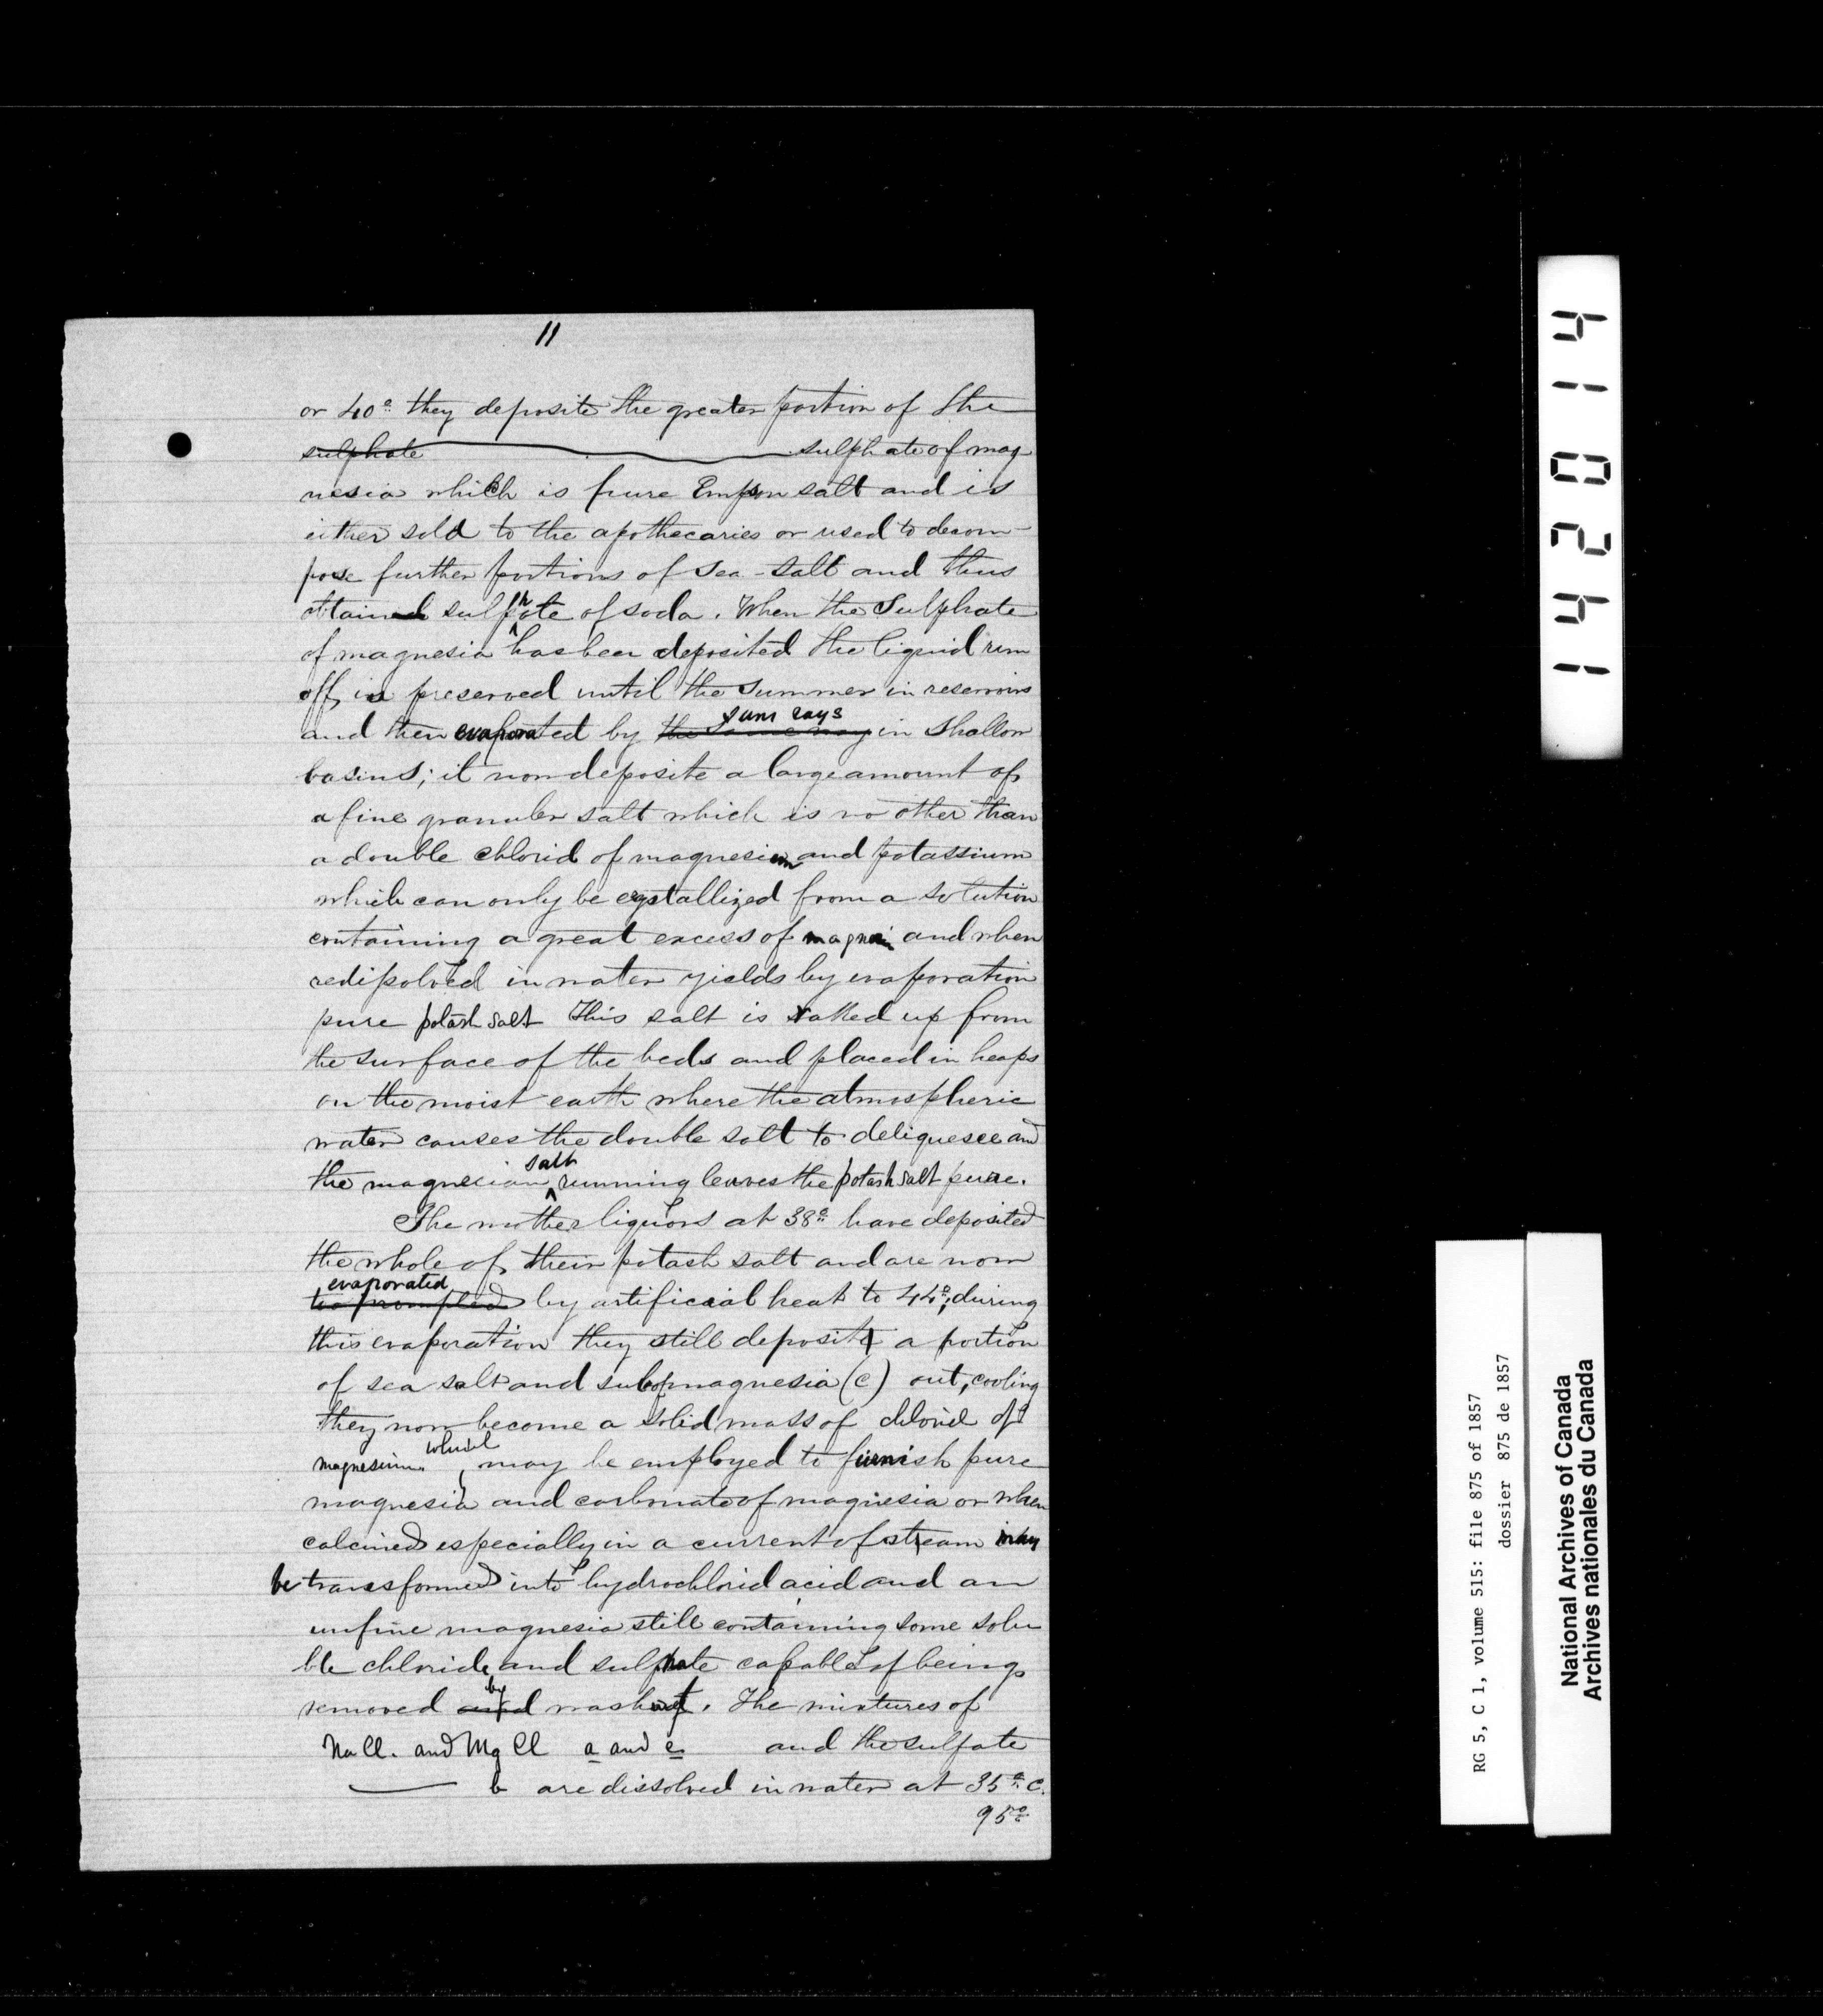 11
or 40° they deposite the greater portion of the
sulphate sulphate of mag
nesia which is pure Empson salt and is
either sold to the apothecaries or used to decom-
pose further portions of sea-salt and thus
obtained sulphate of soda. When the Sulphate
of magnesia has been deposited the liquid run
off, is preserved until the summer in reservoirs
sun rays
and then evaporated by the same way in shallow
basins; it now deposite a large amount of
a fine granular salt which is no other than
a double chlorid of magnesium and potassium
which can only be crystallized from a solution
containing a great excess of and when
redissolved in water yields by evaporation
pure potash salt This salt is raked up from
the surface of the beds and placed in heaps
on the moist earth where the atmospheric
water causes the double salt to deliquesce and
salt
the magnesian running leaves the potash salt pure.
The mother liquors at 38° have deposited
the whole of their potash salt and are now
evaporated
by artificial heat to 44°; during
this evaporation they still deposit a portion
of sea salt and sul of magnesia (c) out, cooling
they now become a solid mass of chlorid of
which
magnesium may be employed to furnish pure
magnesia and carbonate of magnesia or when
calcined especially in a current of steam may
be transformed into hydrochlorid acid and an
unfine magnesia still containing some solu
ble chloride and sulphate capable of being
by
removed and washing. The mixtures of
Na Cl. and Mg Cl a and c and the sulfate
b are dissolved in water at 35° C.
95°
14201 4
RG 5, C 1, volume 515: file 875 of 1857
dossier 875 de 1857
National Archives of Canada
Archives nationales du Canada